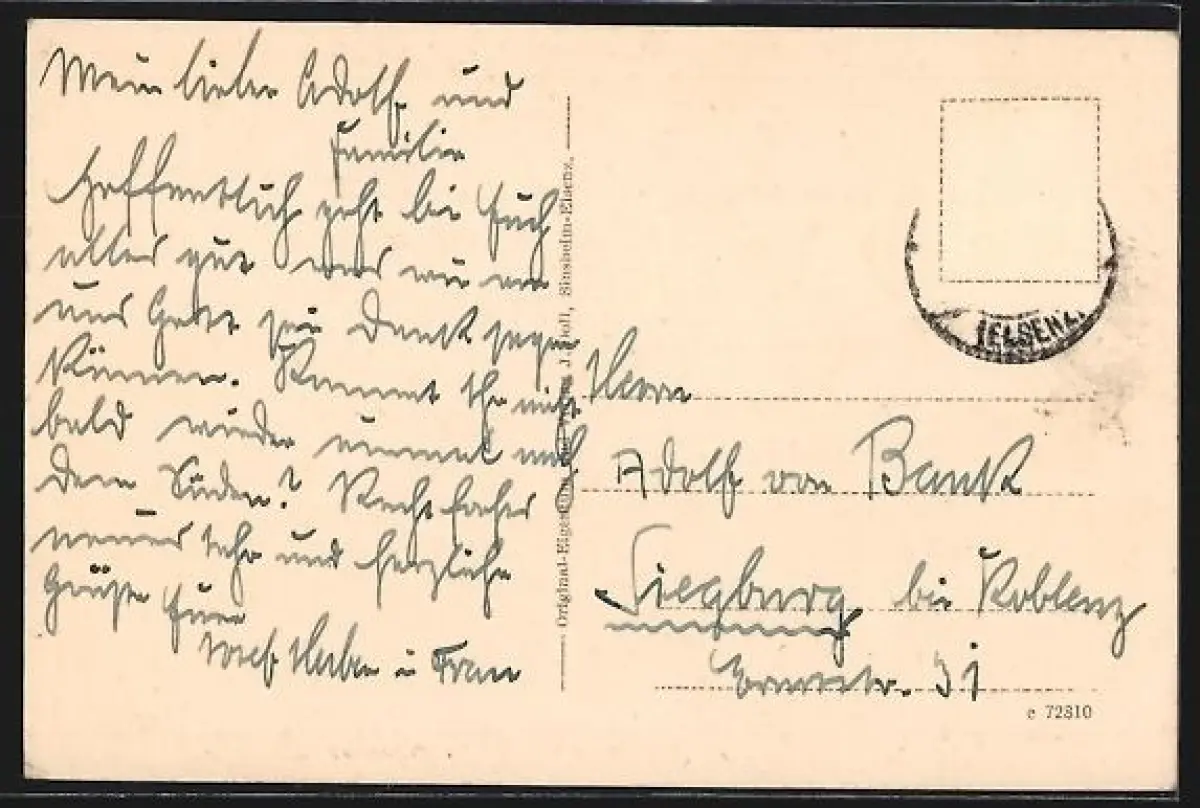 Mein lieber Adolf und
Familie
Hoffentlich geht bei Euch
alles gut was wir von
uns Gott sei Dank sagen
können. Kommt Ihr nicht
bald wieder einmal nach
dem Süden? Recht frohes
neues Jahr und herzliche
Grüße Euer
Josef u Frau
Original-Eigentum J. Doll, Sinsheim-Elsenz.
(ELSENZ)
Herrn
Adolf von Bank
Siegburg bei Koblenz
31
c 72310